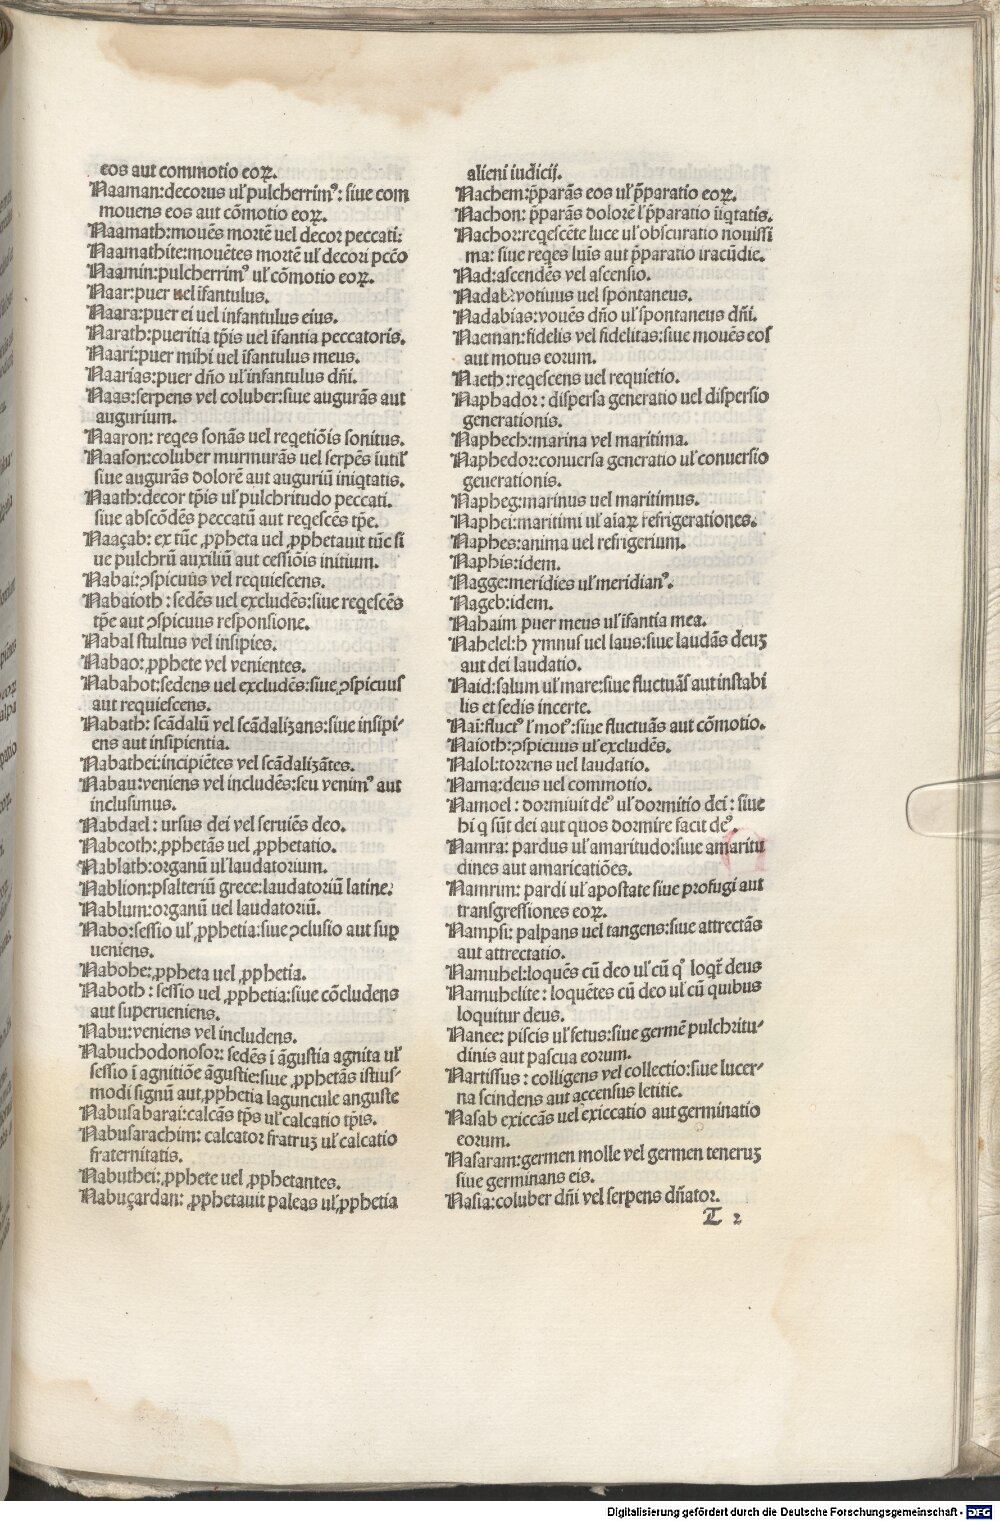 eos aut commotio eoꝝ.
Naaman:decorus ul̕ pulcherrimꝰ: siue com
mouens eos aut cōmotio eoꝝ.
Naamath:mouēs mortē uel decor peccati:
Naamathite:mouētes mortē ul̕ decori pccō
Naamin:pulcherrimꝰ ul̕ cōmotio eoꝝ.
Naar:puer uel īfantulus.
Naara:puer ei uel infantulus eius.
Narath:pueritia tp̄is uel īfantia peccatoris.
Naari:puer mihi uel īfantulus meus.
Naarias:puer dn̄o ul̕ infantulus dn̄i.
Naas:serpens vel coluber:siue augurās aut
augurium.
Naaron: reqes sonās uel reqetiōis sonitus.
Naason:coluber murmurās uel serpēs īutil̕
siue augurās dolorē aut auguriū iniqtatis.
Naath:decor tp̄is ul̕ pulchritudo peccati.
siue abscōdēs peccatū aut reqescēs tp̄e.
Naaçab: ex tūc ꝓpheta uel ꝓphetauit tūc si
ue pulchrū auxiliū aut cessiōis initium.
Nabai:ꝯspicuus vel requiescens.
Nabaioth: sedēs uel excludēs:siue reqescēs
tp̄e aut ꝯspicuus responsione.
Nabal stultus vel insipies.
Nabao: ꝓphete vel venientes.
Nabahot:sedens uel excludēs:siue ꝯspicuus
aut requiescens.
Nabath: scādalū vel scādalizans:siue insipi-
ens aut insipientia.
Nabathei:incipiētes vel scādalizātes.
Nabau:veniens vel includēs:seu venimꝰ aut
inclusimus.
Nabdael: ursus dei vel seruiēs deo.
Nabeoth: ꝓphetās uel ꝓphetatio.
Nablath:organū ul̕ laudatorium.
Nablion:psalteriū grece:laudatoriū latine.
Nablum:organū uel laudatoriū.
Nabo:sessio ul̕ ꝓphetia:siue ꝯclusio aut suꝑ
ueniens.
Nabohe: ꝓpheta uel ꝓphetia.
Naboth: sessio uel ꝓphetia:siue cōcludens
aut superueniens.
Nabu:veniens vel includens.
Nabuchodonosor: sedēs ī āgustia agnita ul̕
sessio ī agnitiōe āgustie:siue ꝓphetās istius-
modi signū aut ꝓphetia laguncule anguste
Nabusabarai:calcās tp̄s ul̕ calcatio tp̄is.
Nabusarachim: calcator fratruȝ ul̕ calcatio
fraternitatis.
Nabuthei: ꝓphete uel ꝓphetantes.
Nabuçardan: ꝓphetauit paleas ul̕ ꝓphetia
alieni iudicij.
Nachem:p̄parās eos ul̕ p̄paratio eoꝝ.
Nachon: p̄parās dolorē l̕ p̄paratio īiqtatis.
Nachor:reqescēte luce ul̕ obscuratio nouissi
ma: siue reqes luīs aut p̄paratio iracūdie.
Nad:ascendēs vel ascensio.
Nadab:votiuus uel spontaneus.
Nadabias:vouēs dn̄o ul̕ spontaneus dn̄i.
Naeman:fidelis vel fidelitas:siue mouēs eos
aut motus eorum.
Naeth:reqescens uel requietio.
Naphador: dispersa generatio uel dispersio
generationis.
Naphech:marina vel maritima.
Naphedor:conuersa generatio ul̕ conuersio
geuerationis.
Napheg:marinus uel maritimus.
Naphei:maritimi ul̕ aīaꝝ refrigerationes.
Naphes:anima vel refrigerium.
Naphis:idem.
Nagge:meridies ul̕ meridianꝰ.
Nageb:idem.
Nahaim puer meus ul̕ īfantia mea.
Nahelel:hymnus vel laus:siue laudās deuȝ
aut dei laudatio.
Naid:salum ul̕ mare:siue fluctuās aut instabi
lis et sedis incerte.
Nai:fluctꝰ l̕ motꝰ:siue fluctuās aut cōmotio.
Naioth:ꝯspicuus ul̕ excludēs.
Nalol:torrens uel laudatio.
Nama:deus uel commotio.
Namoel: dormiuit deꝰ ul̕ dormitio dei: siue
hi q sūt dei aut quos dormire facit deꝰ.
Namra: pardus ul̕ amaritudo:siue amaritu
dines aut amaricatiōes.
Namrim: pardi ul̕ apostate siue profugi aut
transgressiones eoꝝ.
Nampsi: palpans uel tangens:siue attrectās
aut attrectatio.
Namuhel:loquēs cū deo ul̕ cū qꝰ loqt̄ deus
Namuhelite: loquētes cū deo ul̕ cū quibus
loquitur deus.
Nanee: piscis ul̕ fetus:siue germē pulchritu-
dinis aut pascua eorum.
Nartissus: colligens vel collectio:siue lucer-
na scindens aut accensius letitie.
Nasab exiccās uel exiccatio aut germinatio
eorum.
Nasaram:germen molle vel germen teneruȝ
siue germinans eis.
Nasia:coluber dn̄i vel serpens dn̄ator.
T 2
Digitalisierung gefördert durch die Deutsche Forschungsgemeinschaft - DFG